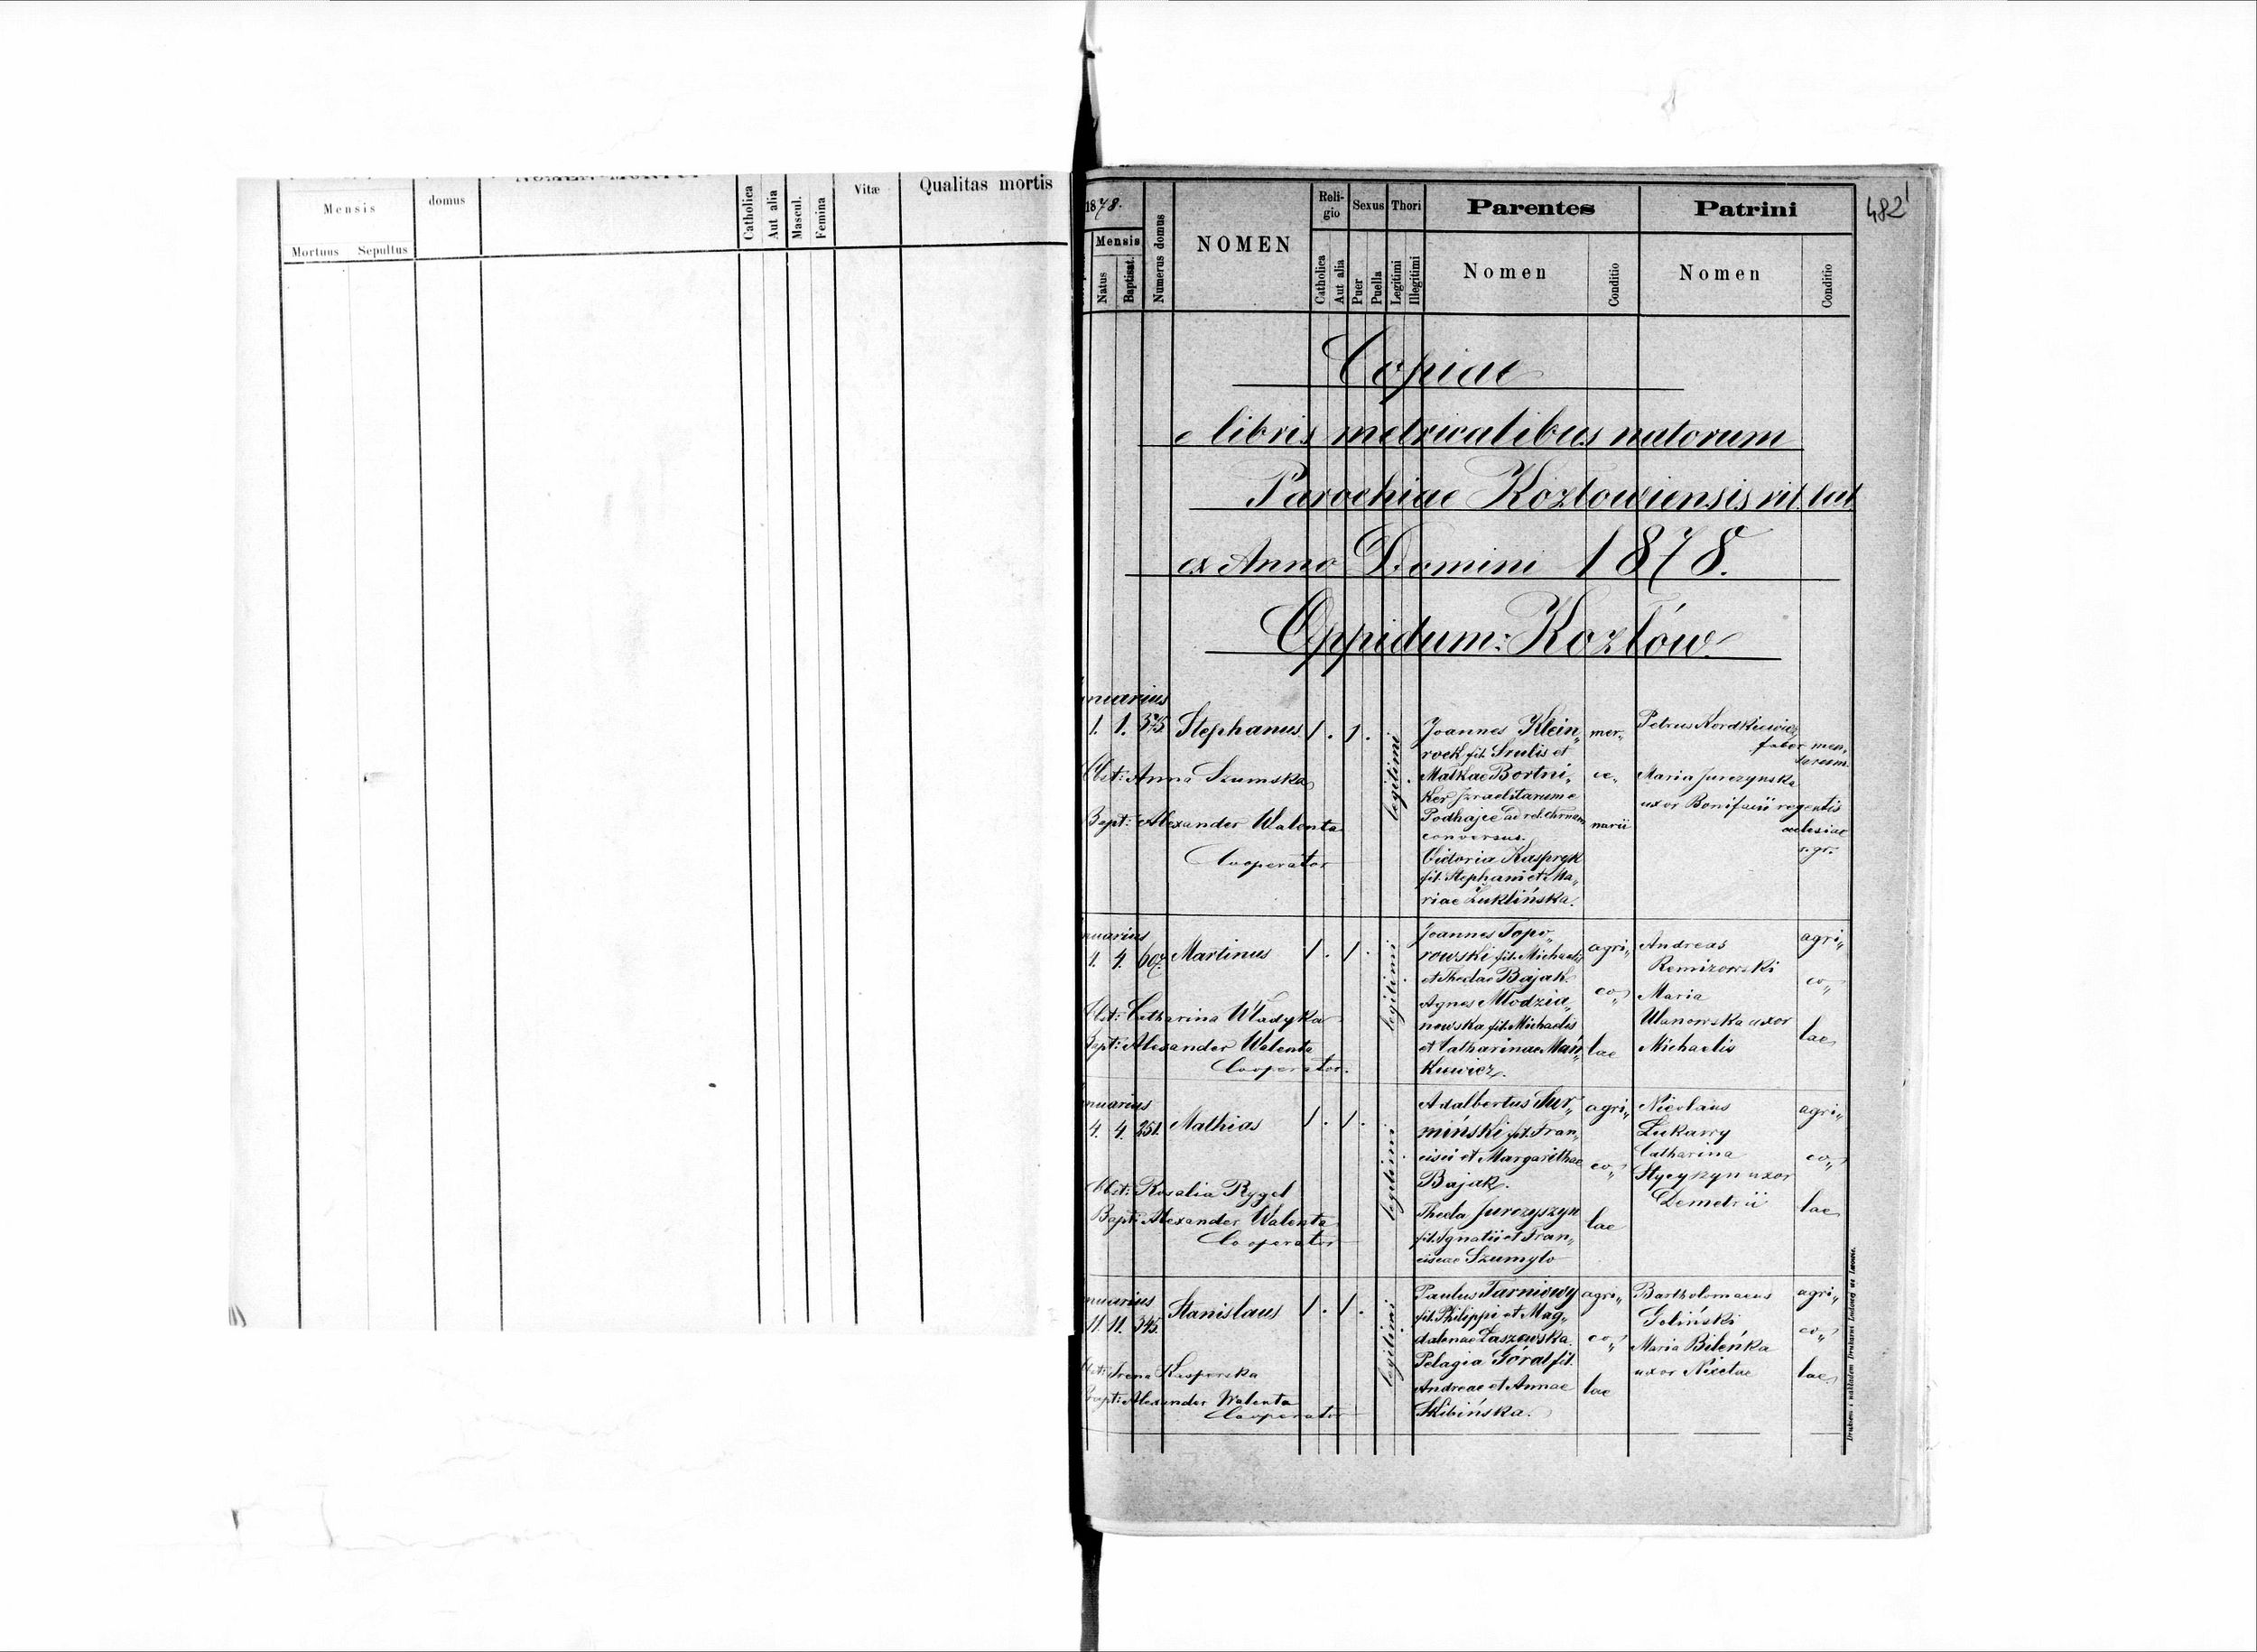 Mensis
Mortuus Sepultus
domus
Catholica
Aut alia
Mascul.
Femina
Vitæ
Qualitas mortis
1878.
Mensis
Natus
Baptisat.
Numerus domus
NOMEN
Reli-
gio
Catholica
Aut alia
Sexus
Puer
Puella
Thori
Legitimi
Illegitimi
Parentes
Nomen
Conditio
Patrini
Nomen
Conditio
482
Copiae
e libris metricalibus natorum
Parochiae Kozłowiensis rit. lat.
ex Anno Domini 1878.
Oppidum: Kozłów
nuarius
1. 1. 375. Stephanus 1. 1.
Obst: Anna Szumska
Bapt: Alexander Walenta
Cooperator
legitimi
Joannes Klein„
rock fil. Srulis et
Malkae Bortni„
ker Izraelitarum e
Podhajce ad rel. Chrnam
conversus.
Victoria Kaspryk
fil. Stephani et Ma„
riae Zuklińska.
mer„
ce„
narii
Petrus Kordkiewicz
faber men„
sarum.
Maria Jurczynska
uxor Bonifacii regentis
ecclesiae
r. gr.
nuarius
4. 4. 607. Martinus 1. 1.
Obst: Catharina Władyka
Bapt: Alexander Walenta
Cooperator.
legitimi
Joannes Topo„
rowski fil. Michaelis
et Theclae Bajak.
Agnes Młodzia„
nowska fil. Michaelis
et Catharinae Mań„
kiewicz.
agri„
co„
lae
Andreas
Remizowski
Maria
Ulanowska uxor
Michaelis
agri„
co„
lae
nuarius
4. 4. 251. Mathias 1. 1.
Obst: Rosalia Rygel
Bapt: Alexander Walenta
Cooperator
legitimi
Adalbertus Tur„
miński fil. Fran„
cisci et Margarithae
Bajak.
Thecla Jurczyszyn
fil. Ignatii et Fran„
ciscae Szumyło
agri„
co„
lae
Nicolaus
Łukawy
Catharina
uxor
Demetrii
agri„
co„
lae
nuarius
11. 11. 345. Stanislaus 1. 1.
Obst: Irena Kasperska
Bapt: Alexander Walenta
Cooperator
legitimi
Paulus Tarniowy
fil. Philippi et Mag„
dalenae Łaszowska.
Pelagia Góral fil.
Andreae et Annae
Skibińska.
agri„
co„
lae
Bartholomaeus
Goliński
Maria Bileńka
uxor Nicetae
agri„
co„
lae
Drukiem i nakładem Drukarni Ludowej we Lwowie.